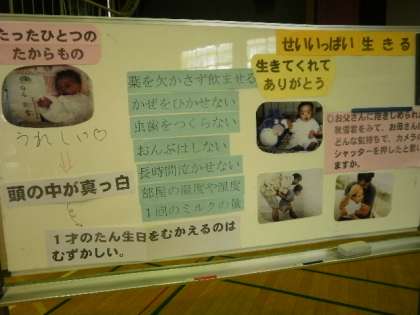 たったひとつの
たからもの
うれしい♡
頭の中が真っ白
1才のたん生日をむかえるのは
むずかしい。
薬を欠かさず飲ませる
かぜをひかせない
虫歯をつくらない
おんぶはしない
長時間泣かせない
部屋の湿度や温度
1回のミルクの量
せいいっぱい生きる
生きてくれて
ありがとう
お父さんに抱きしめられ
秋雪君をみて、お母さんは
どんな気持ちで、カメラの
シャッターを押したと思い
ますか。